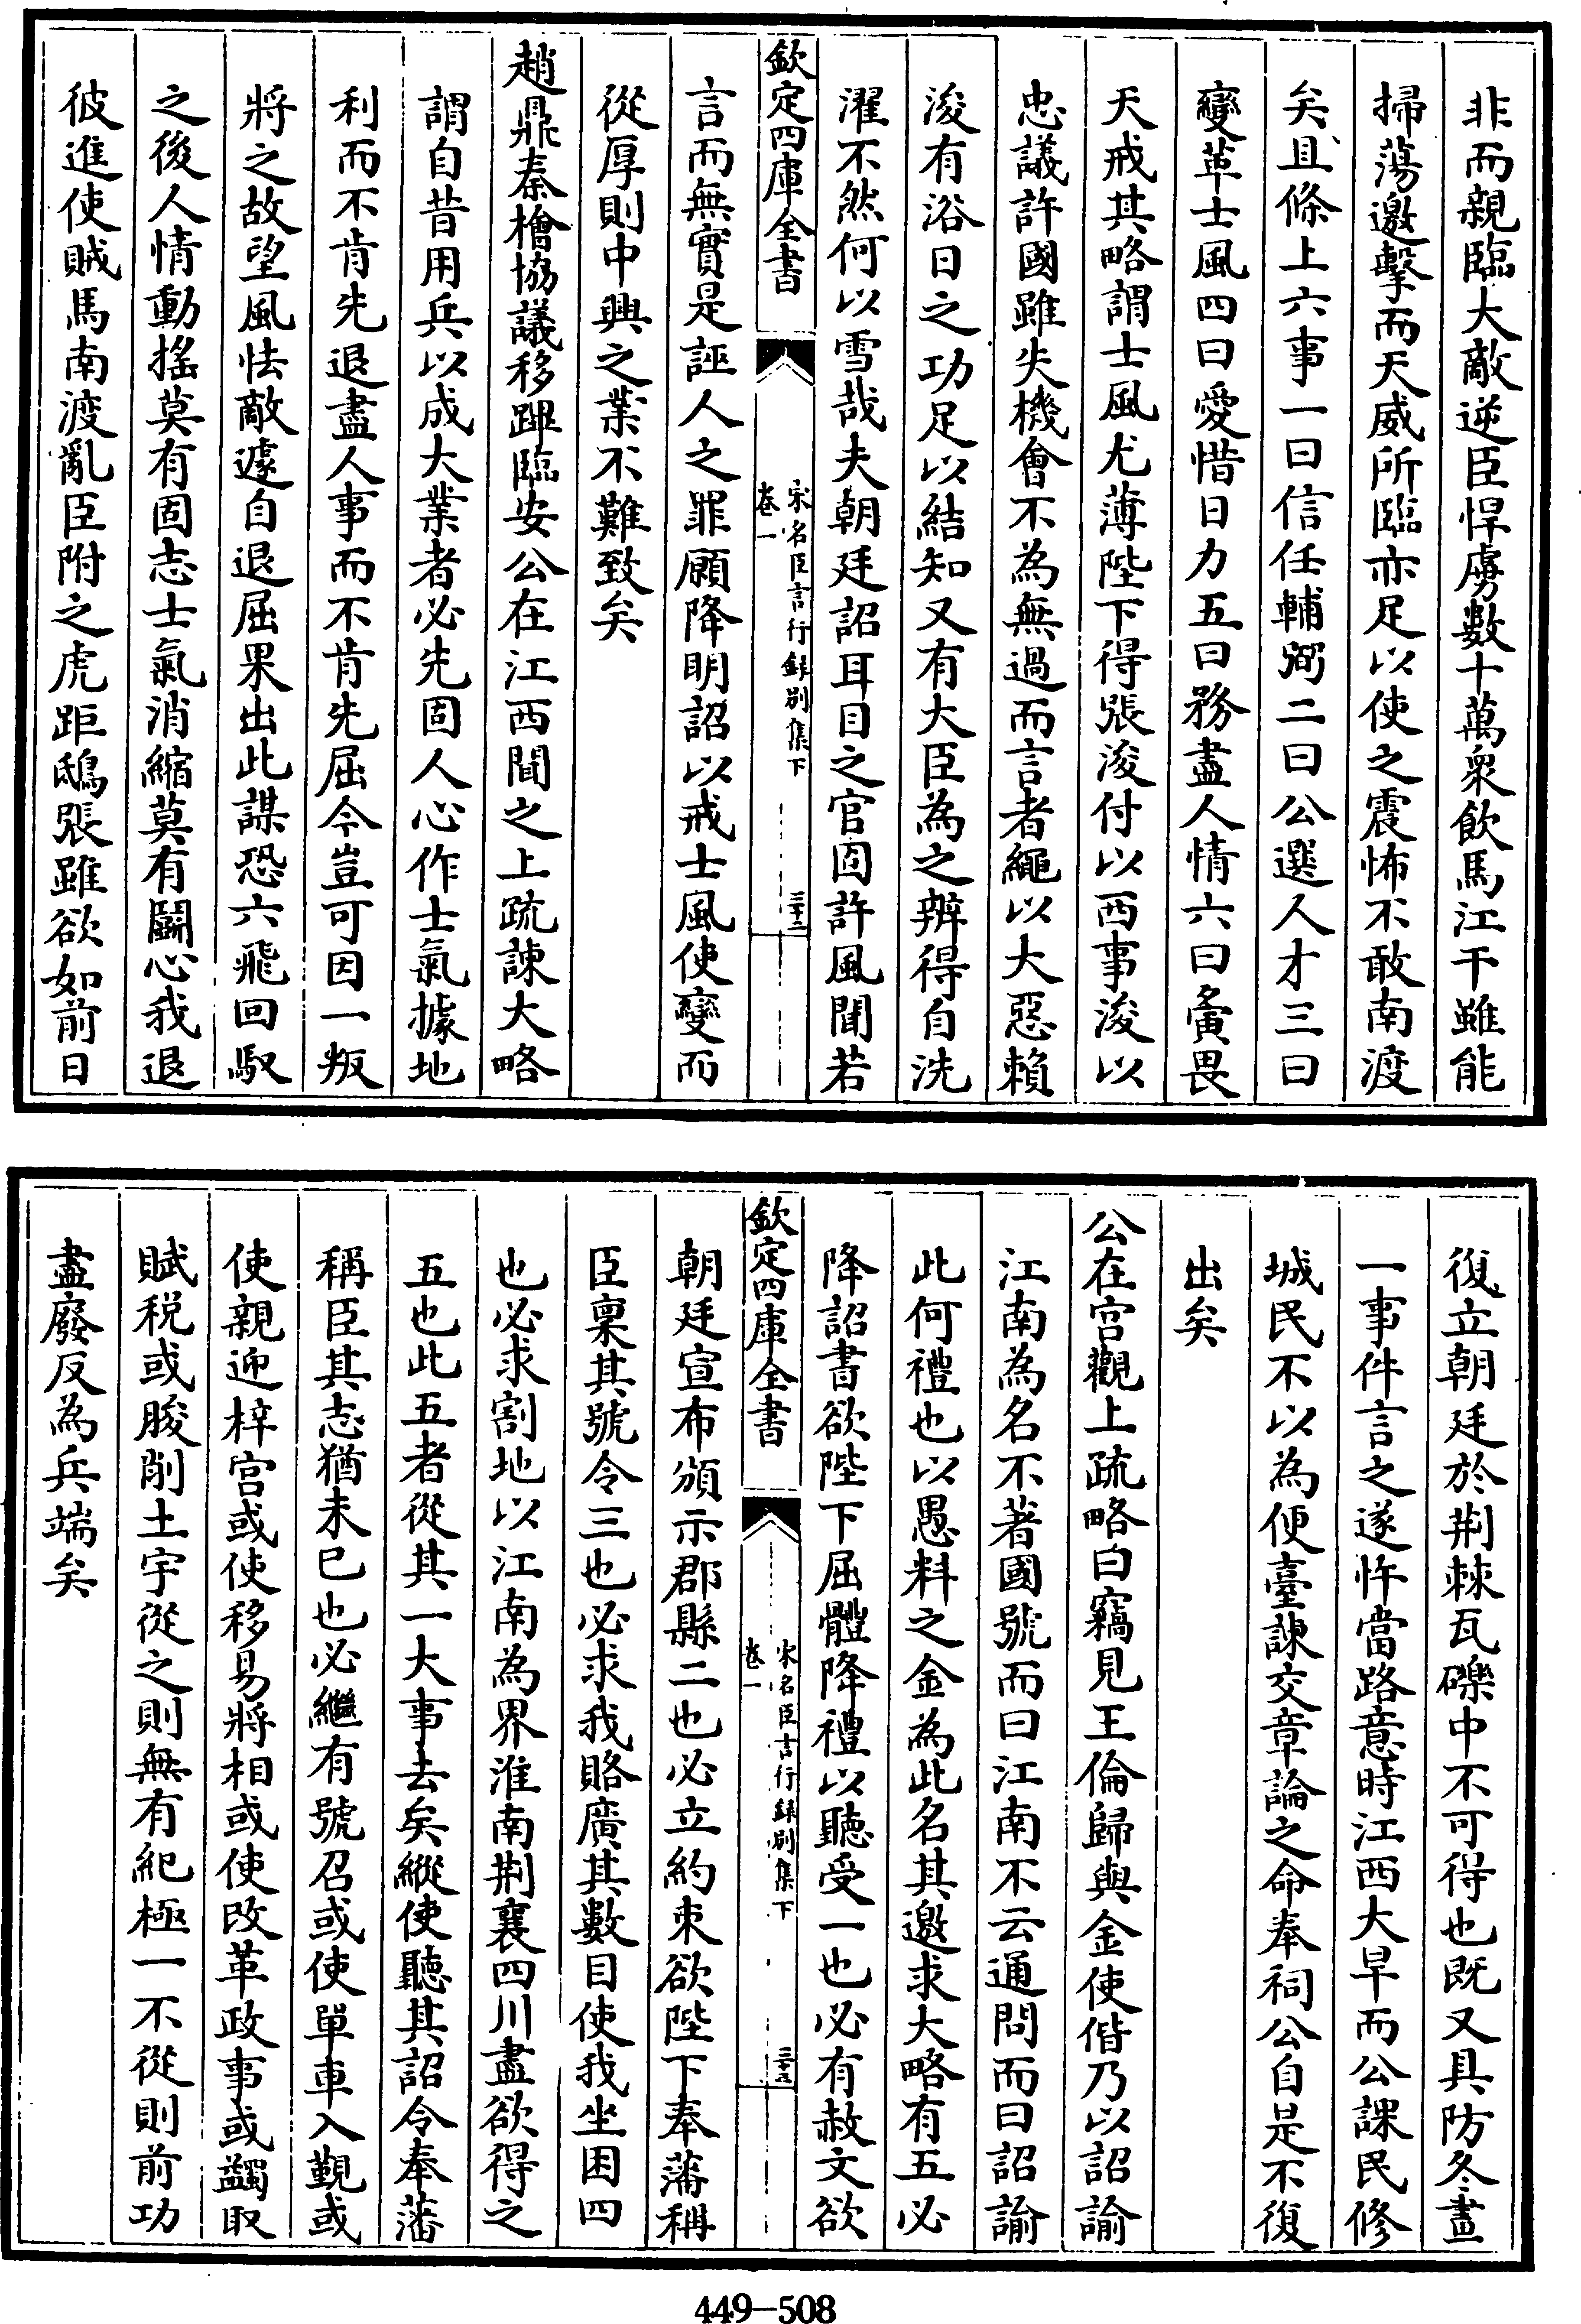 非而親臨大敵逆臣悍虜數十萬衆飲馬江干雖能
掃蕩邀擊而天威所臨亦足以使之震怖不敢南渡
矣且條上六事一曰信任輔弼二曰公選人才三曰
變革士風四曰愛惜日力五曰務盡人情六曰寅畏
天戒其略謂士風尤薄陛下得張浚付以西事浚以
忠議許國雖失機會不為無過而言者繩以大惡賴
浚有浴日之功足以結知又有大臣為之辨得自洗
濯不然何以雪哉夫朝廷詔耳目之官固許風聞若
欽定四庫全書
宋名臣言行錄別集下
卷一
三十二
言而無實是誣人之罪願降明詔以戒士風使變而
從厚則中興之業不難致矣
趙鼎秦檜協議移蹕臨安公在江西聞之上疏諫大略
謂自昔用兵以成大業者必先固人心作士氣據地
利而不肯先退盡人事而不肯先屈今豈可因一叛
將之故望風怯敵遽自退屈果出此謀恐六飛回馭
之後人情動搖莫有固志士氣消縮莫有鬭心我退
彼進使賊馬南渡亂臣附之虎距鴟張雖欲如前日
復立朝廷於荆棘瓦礫中不可得也既又具防冬畫
一事件言之遂忤當路意時江西大旱而公課民修
城民不以為便臺諫交章論之命奉祠公自是不復
出矣
公在宮觀上疏略曰竊見王倫歸與金使偕乃以詔諭
江南為名不著國號而曰江南不云通問而曰詔諭
此何禮也以愚料之金為此名其邀求大略有五必
降詔書欲陛下屈體降禮以聽受一也必有赦文欲
欽定四庫全書
宋名臣言行錄別集下
卷一
三十三
朝廷宣布頒示郡縣二也必立約束欲陛下奉藩稱
臣稟其號令三也必求我賂廣其數目使我坐困四
也必求割地以江南為界淮南荆襄四川盡欲得之
五也此五者從其一大事去矣縱使聽其詔令奉藩
稱臣其志猶未已也必繼有號召或使單車入覲或
使親迎梓宮或使移易將相或使改革政事或蠲取
賦稅或朘削土宇從之則無有紀極一不從則前功
盡廢反為兵端矣
449-508